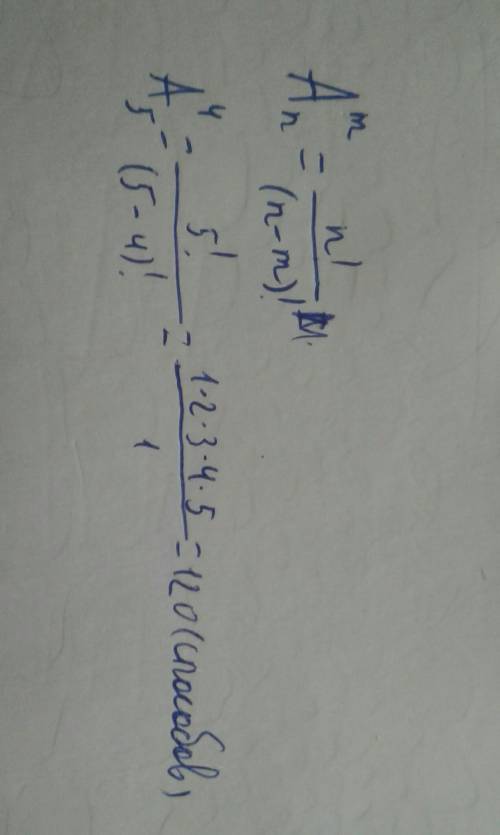 A_n^m = n! / (n-m)!
A_5^4 = 5! / (5-4)! = 1·2·3·4·5 / 1 = 120 (способов)